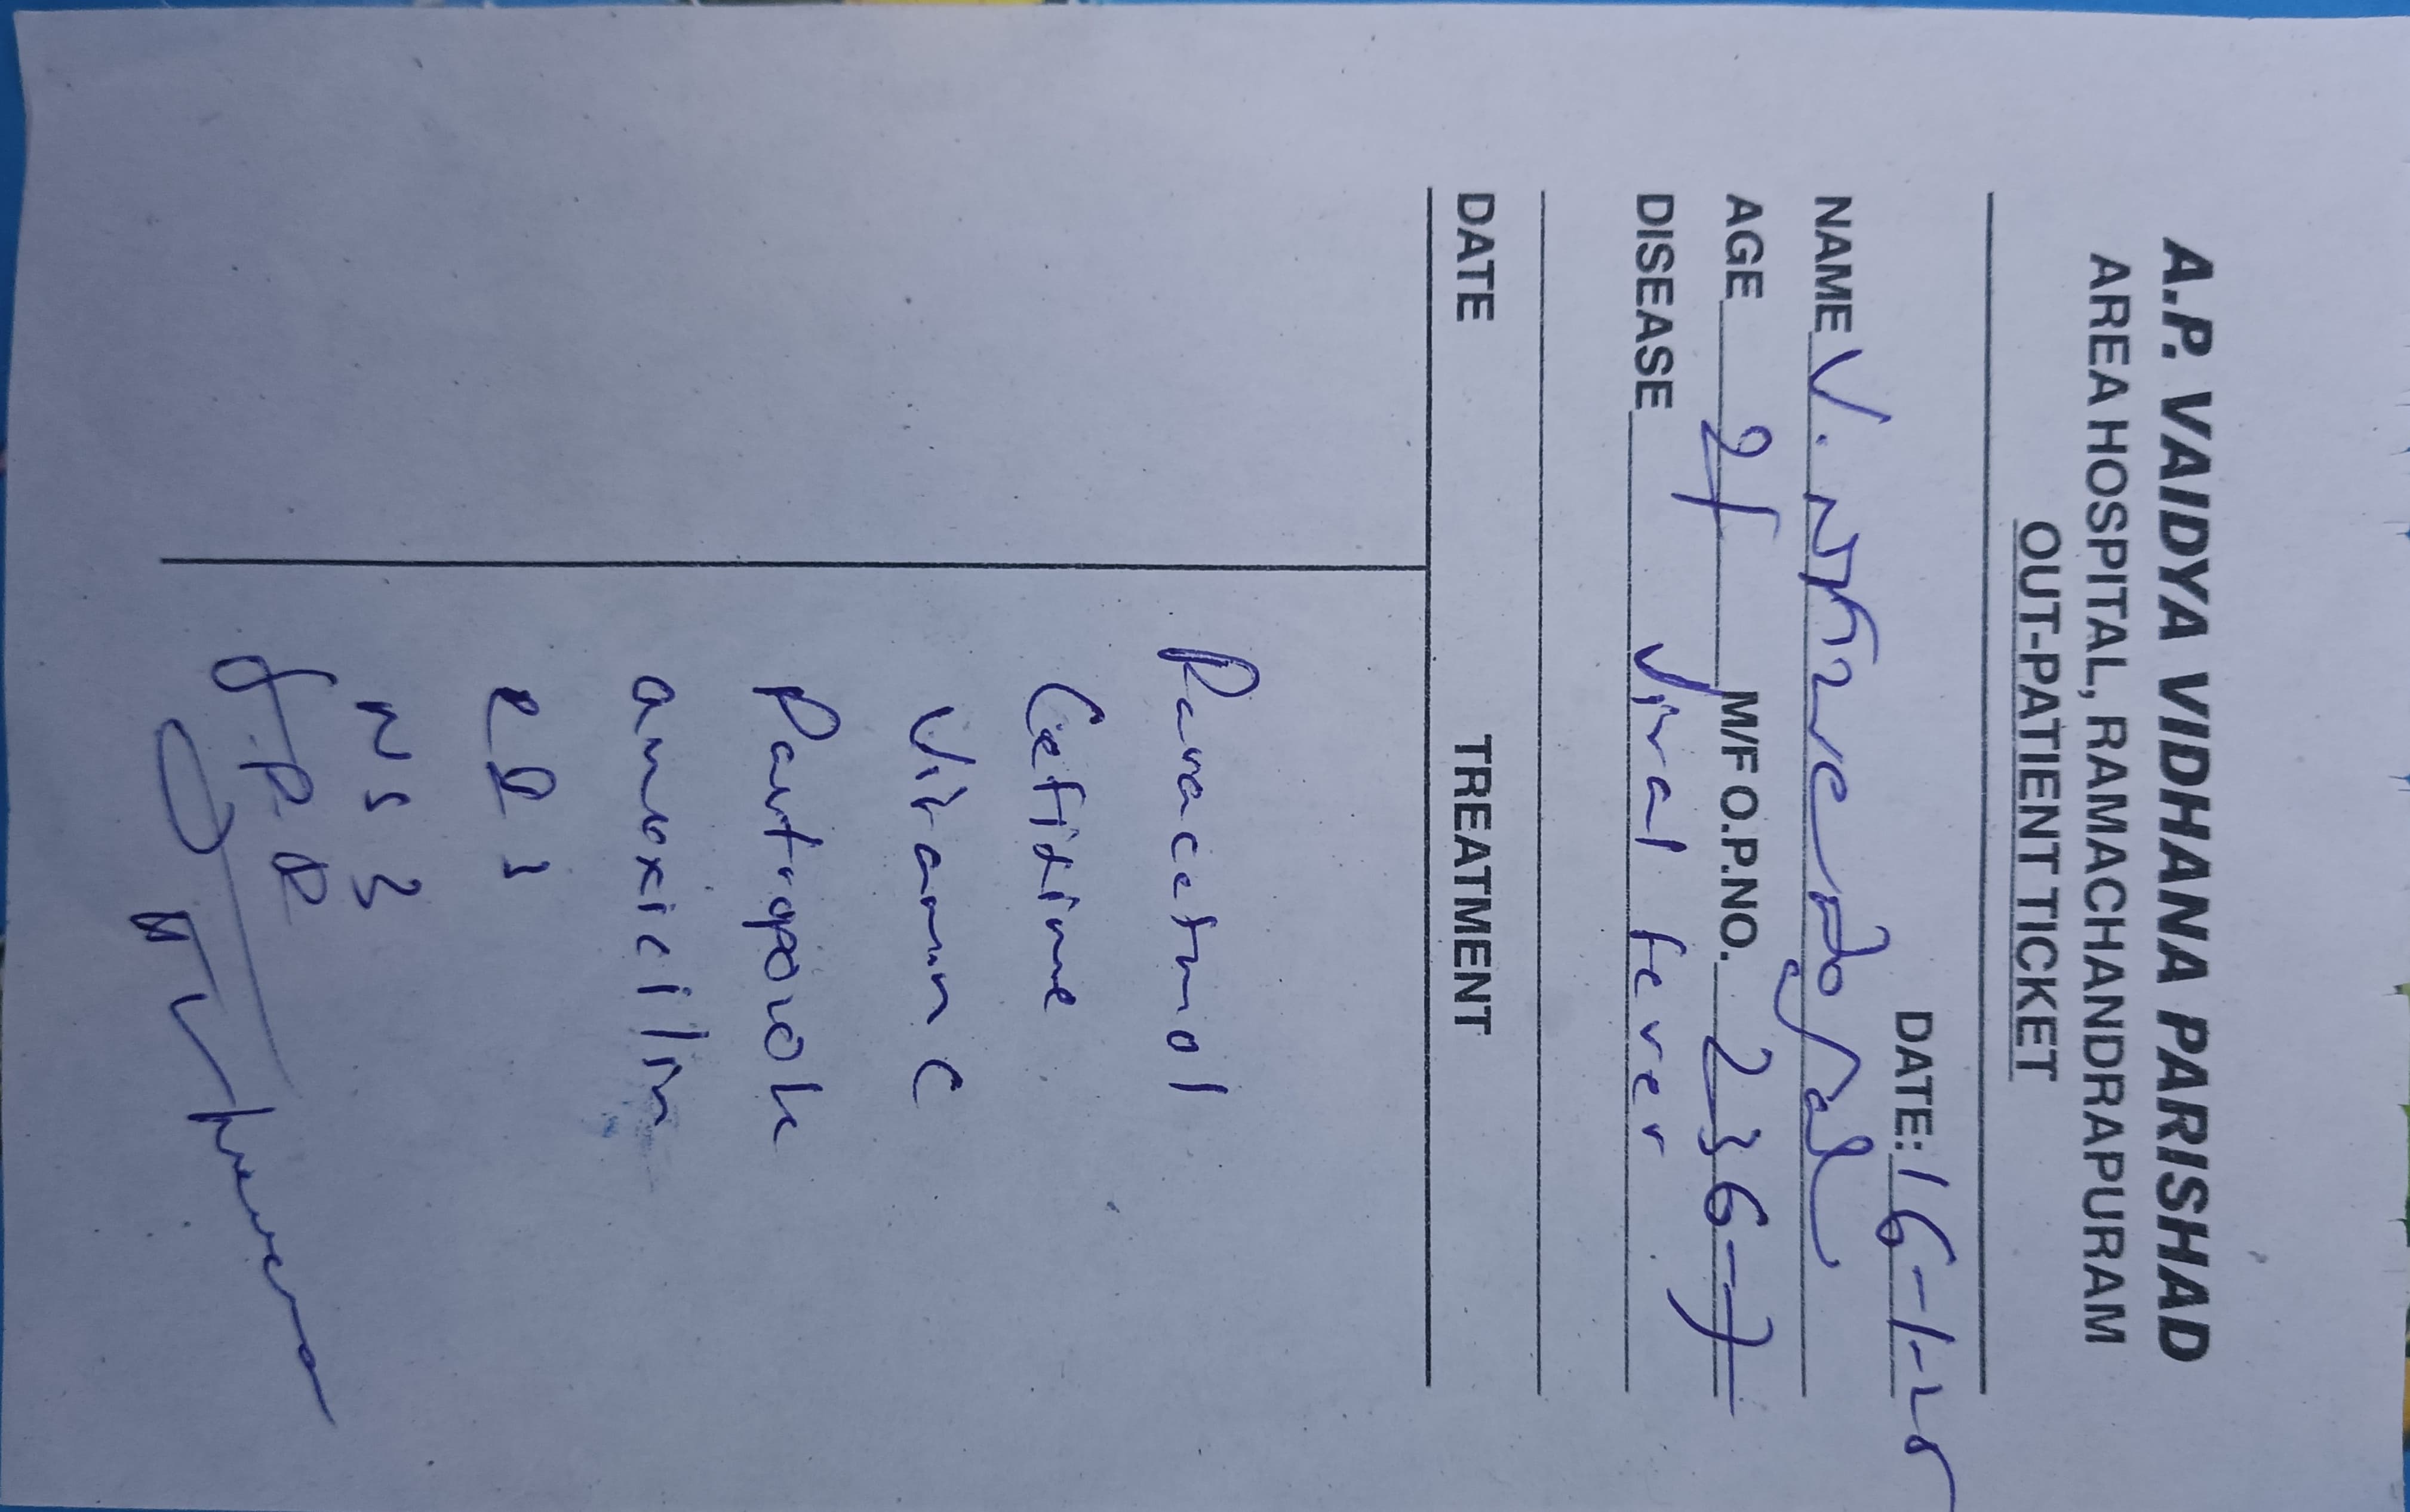 A.P. VAIDYA VIDHANA PARISHAD
AREA HOSPITAL, RAMACHANDRAPURAM
OUT-PATIENT TICKET
DATE: 16-1-25
NAME V.
AGE M/F O.P.NO. 236-7
DISEASE Viral fever
DATE TREATMENT
Paracetmol
Cefixime
Vitamin C
amoxicillin
NS 3